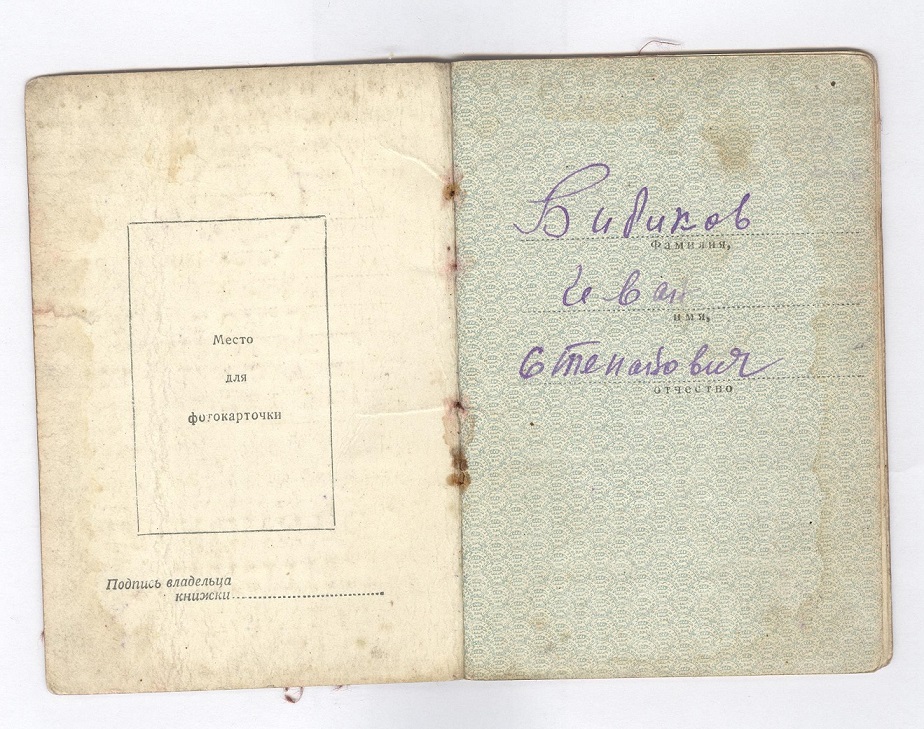 Место
для
фотокарточки
Подпись владельца
книжки
Бидиков
фамилия,
Иван
имя,
Степанович
отчество